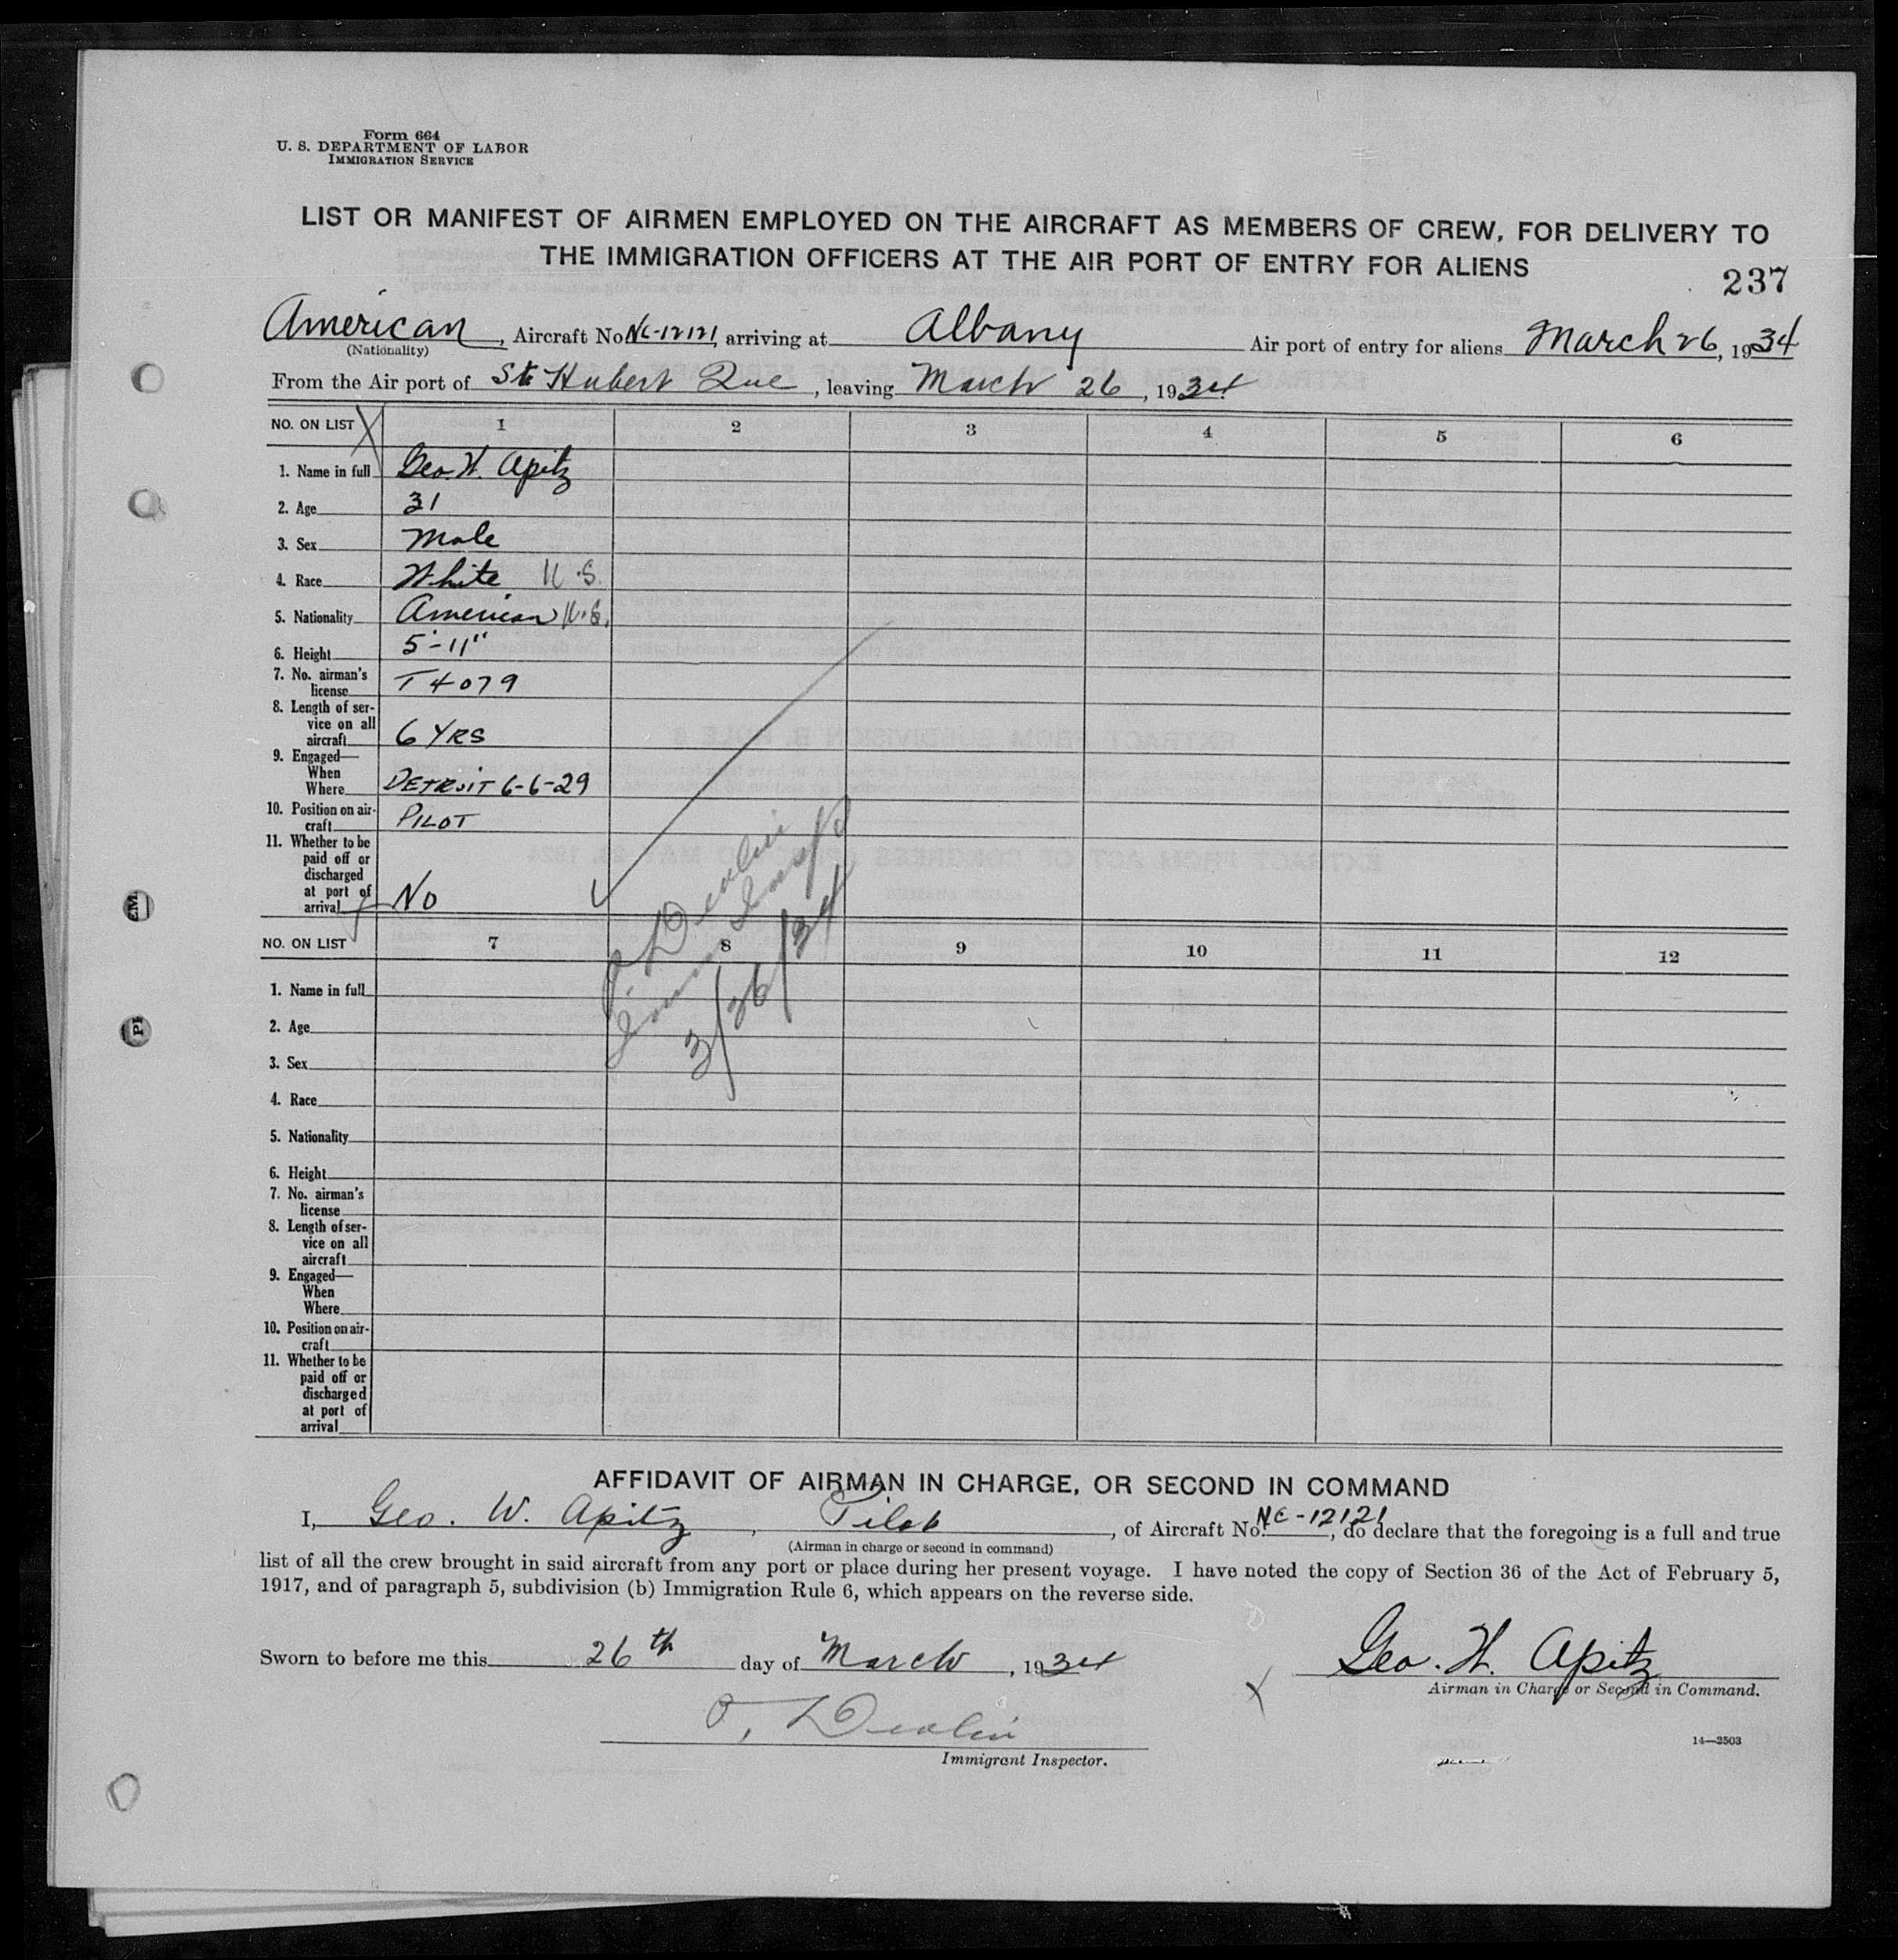 Form 664
U. S. DEPARTMENT OF LABOR
IMMIGRATION SERVICE
LIST OR MANIFEST OF AIRMEN EMPLOYED ON THE AIRCRAFT AS MEMBERS OF CREW, FOR DELIVERY TO
THE IMMIGRATION OFFICERS AT THE AIR PORT OF ENTRY FOR ALIENS
237
American, Aircraft No. NC-12121, arriving at Albany Air port of entry for aliens March 26, 1934
(Nationality)
From the Air port of St. Hubert Que, leaving March 26, 1934
NO. ON LIST X 1 2 3 4 5 6
1. Name in full Geo. W. Apitz
2. Age 31
3. Sex Male
4. Race White U.S.
5. Nationality American U.S.
6. Height 5'-11"
7. No. airman's
license T 4079
8. Length of ser-
vice on all
aircraft 6 YRS
9. Engaged—
When
Where DETROIT 6-6-29
10. Position on air-
craft PILOT
11. Whether to be
paid off or
discharged
at port of
arrival NO
Devlin
Immig Insp
3/26/34
NO. ON LIST 7 8 9 10 11 12
1. Name in full
2. Age
3. Sex
4. Race
5. Nationality
6. Height
7. No. airman's
license
8. Length of ser-
vice on all
aircraft
9. Engaged—
When
Where
10. Position on air-
craft
11. Whether to be
paid off or
discharged
at port of
arrival
AFFIDAVIT OF AIRMAN IN CHARGE, OR SECOND IN COMMAND
I, Geo. W. Apitz, Pilot, of Aircraft No. NC-12121, do declare that the foregoing is a full and true
(Airman in charge or second in command)
list of all the crew brought in said aircraft from any port or place during her present voyage. I have noted the copy of Section 36 of the Act of February 5,
1917, and of paragraph 5, subdivision (b) Immigration Rule 6, which appears on the reverse side.
Sworn to before me this 26th day of March, 1934
X Geo. W. Apitz
Airman in Charge or Second in Command.
Devlin
Immigrant Inspector.
14—2503